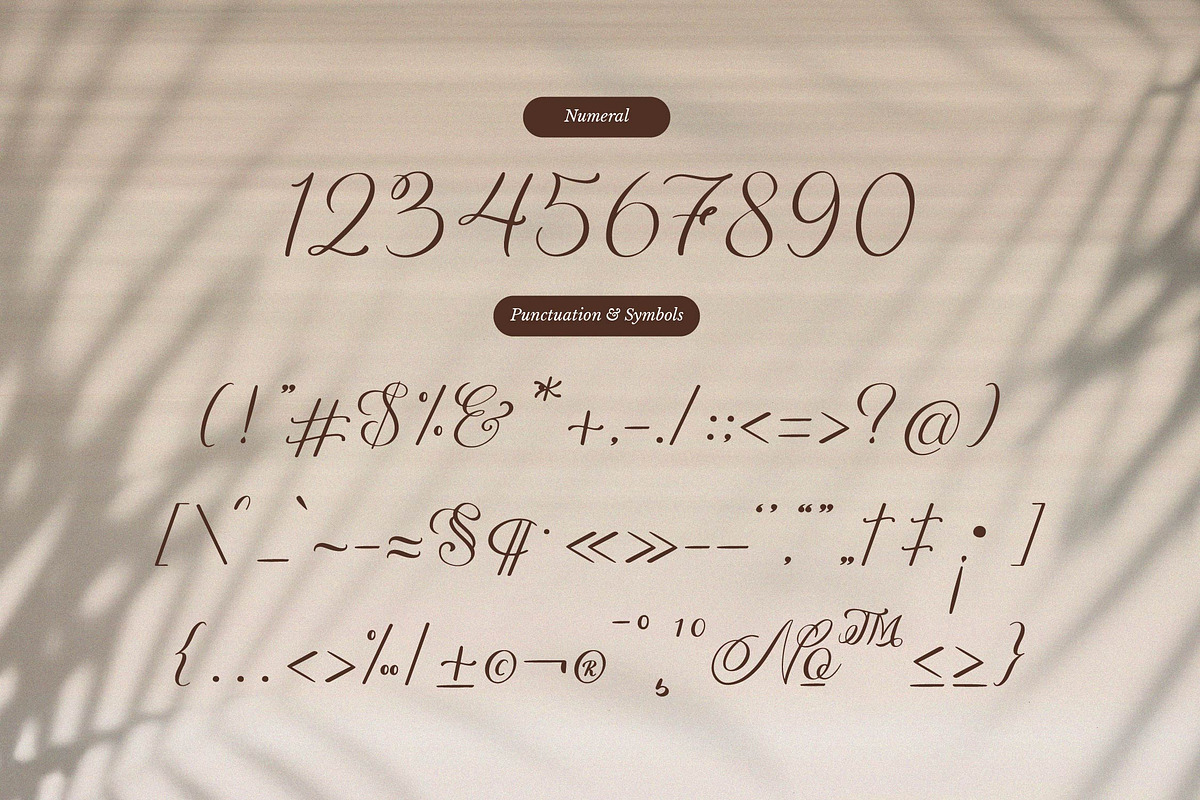 Numeral
1234567890
Punctuation & Symbols
(!"#$%&*+,-./:;<=>?@)
[\^_`~–≈§¶·«»–—‘’‚“”„†‡¡•]
{...<>‰/±©¬®¯º¸10№™≤≥}